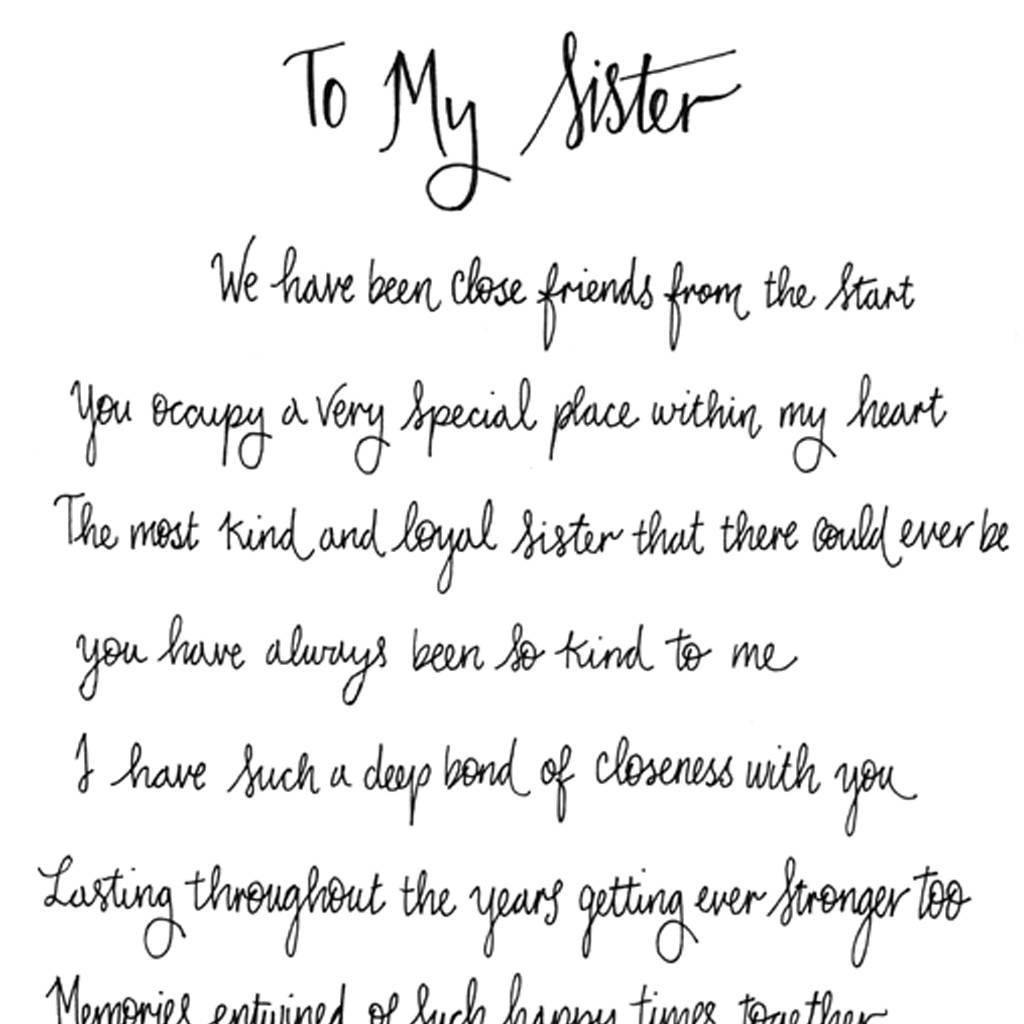 To My Sister
We have been close friends from the start
You occupy a very special place within my heart
The most kind and loyal sister that there could ever be
you have always been so kind to me
I have such a deep bond of closeness with you
Lasting throughout the years getting ever stronger too
Memories entwined of such happy times together